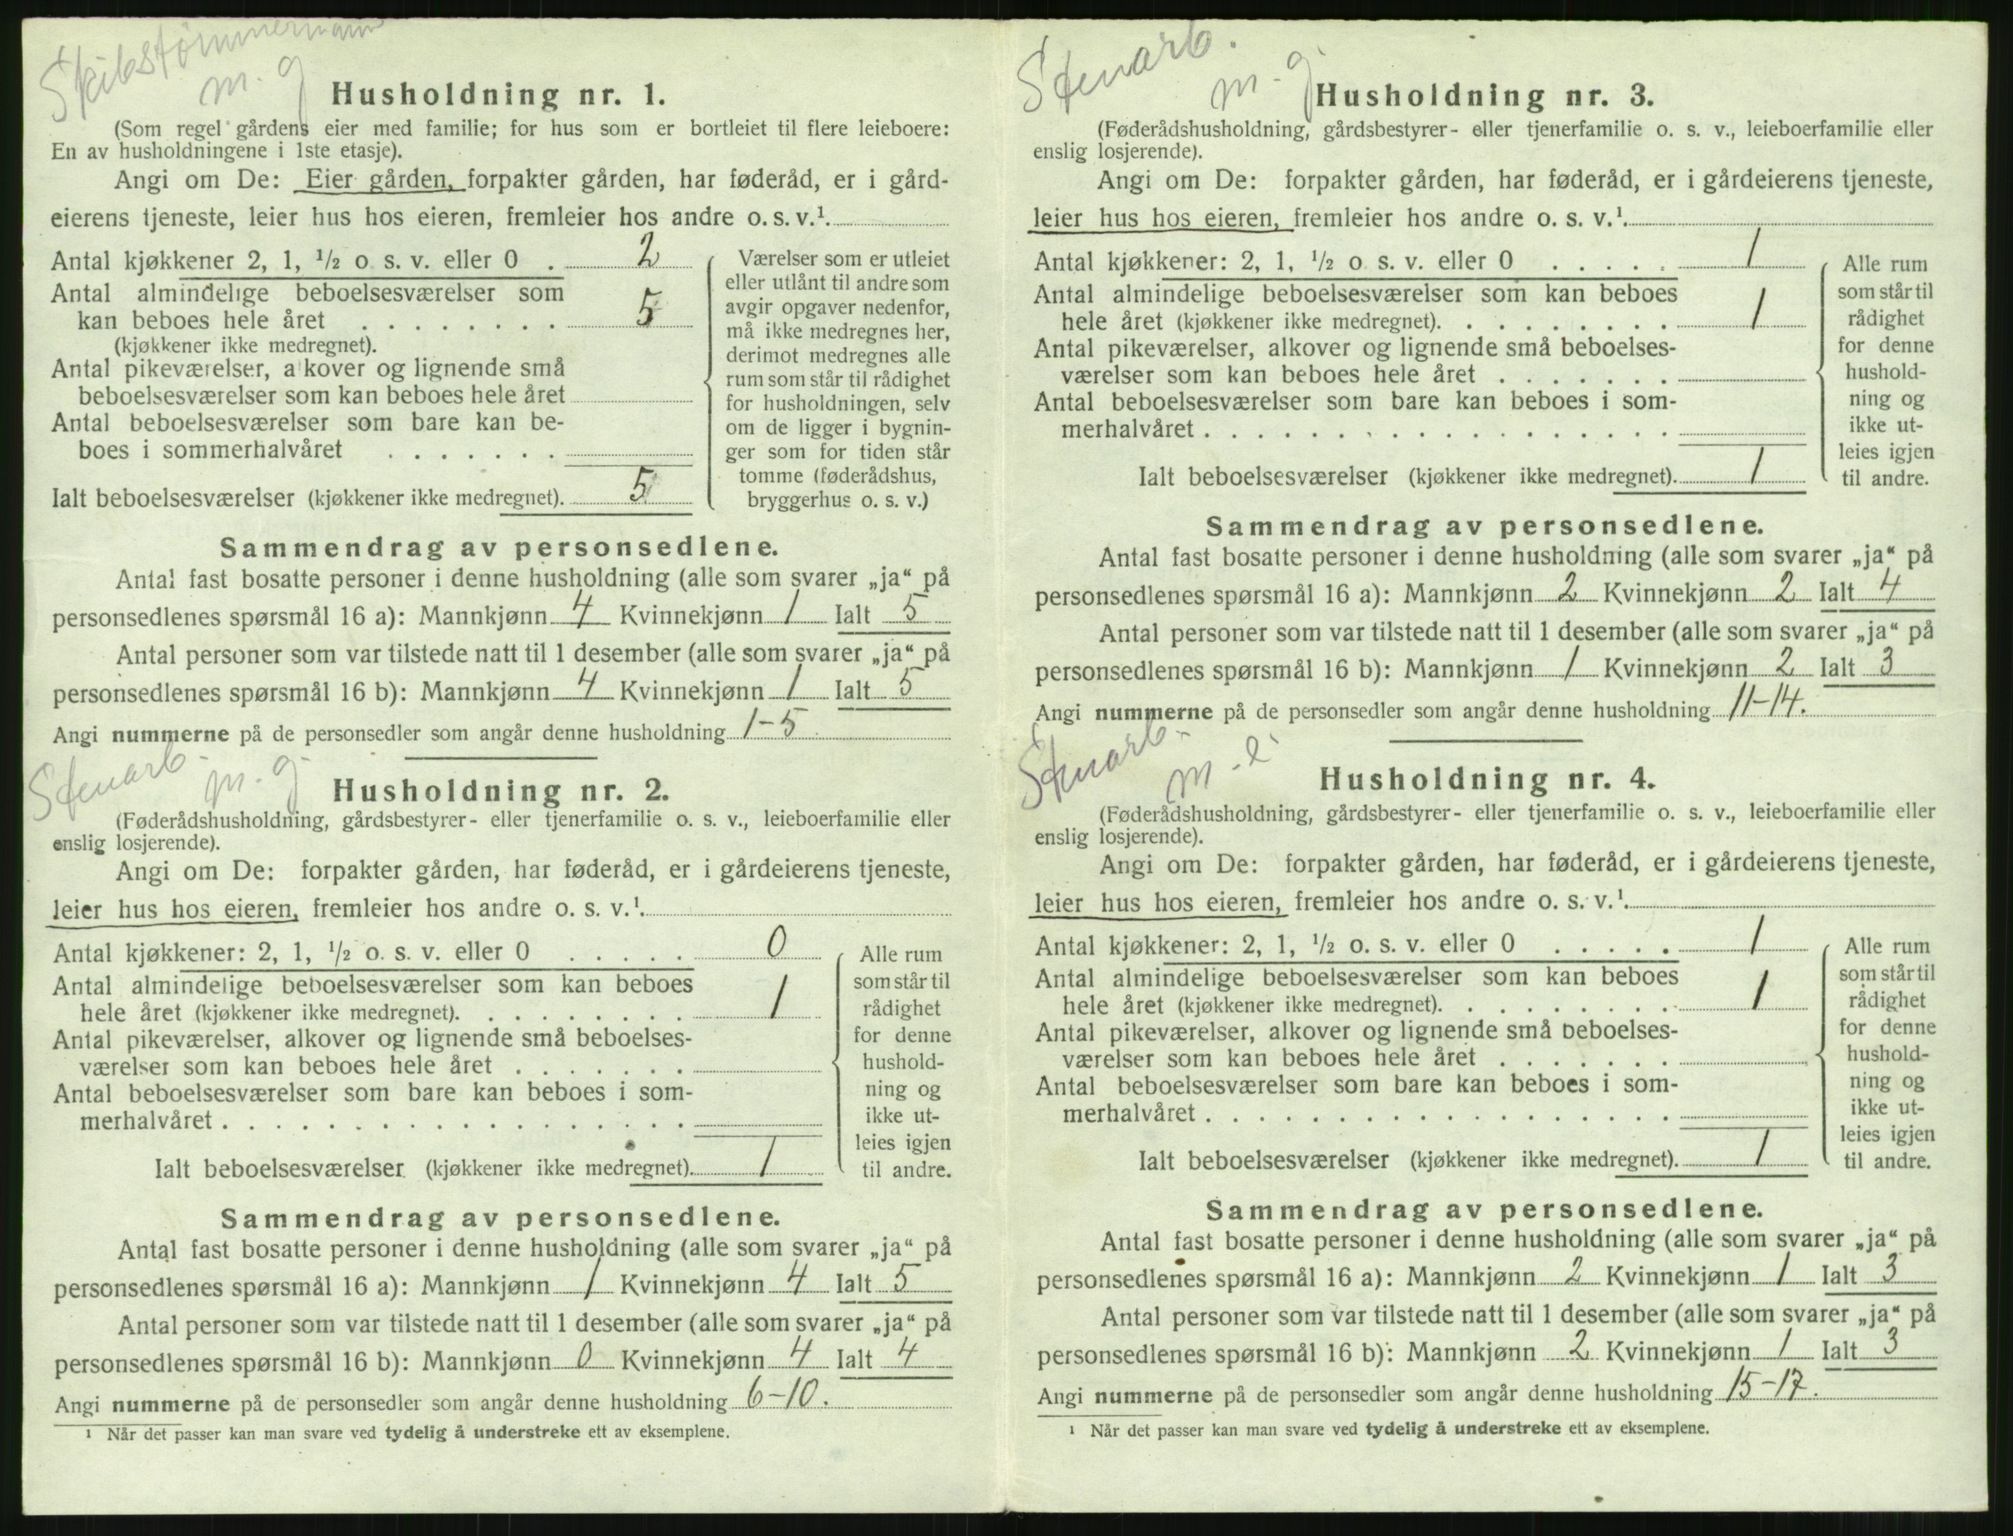 Skibstømmermann
m. g
Husholdning nr. 1.
(Som regel gårdens eier med familie; for hus som er bortleiet til flere leieboere:
En av husholdningene i 1ste etasje).
Angi om De: Eier gården, forpakter gården, har føderåd, er i gård-
eierens tjeneste, leier hus hos eieren, fremleier hos andre o. s. v.¹.
Antal kjøkkener 2, 1, ½ o s. v. eller 0 . 2
Antal almindelige beboelsesværelser som
kan beboes hele året . . . . . . . . 5
(kjøkkener ikke medregnet).
Antal pikeværelser, a kover og lignende små
beboelsesværelser som kan beboes hele året
Antal beboelsesværelser som bare kan be-
boes i sommerhalvåret . . . . . . .
Ialt beboelsesværelser (kjøkkener ikke medregnet). 5
Værelser som er utleiet
eller utlånt til andre som
avgir opgaver nedenfor,
må ikke medregnes her,
derimot medregnes alle
rum som står til rådighet
for husholdningen, selv
om de ligger i bygnin-
ger som for tiden står
tomme (føderådshus,
bryggerhus o. s. v.)
Sammendrag av personsedlene.
Antal fast bosatte personer i denne husholdning (alle som svarer „ja“ på
personsedlenes spørsmål 16 a): Mannkjønn 4 Kvinnekjønn 1 Ialt 5
Antal personer som var tilstede natt til 1 desember (alle som svarer „ja“ på
personsedlenes spørsmål 16 b): Mannkjønn 4 Kvinnekjønn 1 Ialt 5
Angi nummerne på de personsedler som angår denne husholdning 1-5
Stenarb.
m. g.
Husholdning nr. 2.
(Føderådshusholdning, gårdsbestyrer- eller tjenerfamilie o. s. v., leieboerfamilie eller
enslig losjerende).
Angi om De: forpakter gården, har føderåd, er i gårdeierens tjeneste,
leier hus hos eieren, fremleier hos andre o. s. v.¹.
Antal kjøkkener: 2, 1, ½ o. s. v. eller 0 . . . . . 0
Antal almindelige beboelsesværelser som kan beboes
hele året (kjøkkener ikke medregnet). . . . . . . . . 1
Antal pikeværelser, alkover og lignende små beboelses-
værelser som kan beboes hele året . . . . . . .
Antal beboelsesværelser som bare kan beboes i som-
merhalvåret . . . . . . . . . . . . . . . . . .
Ialt beboelsesværelser (kjøkkener ikke medregnet). 1
Alle rum
som står til
rådighet
for denne
hushold-
ning og
ikke ut-
leies igjen
til andre.
Sammendrag av personsedlene.
Antal fast bosatte personer i denne husholdning (alle som svarer „ja“ på
personsedlenes spørsmål 16 a): Mannkjønn 1 Kvinnekjønn 4 Ialt 5
Antal personer som var tilstede natt til 1 desember (alle som svarer „ja“ på
personsedlenes spørsmål 16 b): Mannkjønn 0 Kvinnekjønn 4 Ialt 4
Angi nummerne på de personsedler som angår denne husholdning 6-10.
¹ Når det passer kan man svare ved tydelig å understreke ett av eksemplene.
Stenarb.
m. g.
Husholdning nr. 3.
(Føderådshusholdning, gårdsbestyrer- eller tjenerfamilie o. s. v., leieboerfamilie eller
enslig losjerende).
Angi om De: forpakter gården, har føderåd, er i gårdeierens tjeneste,
leier hus hos eieren, fremleier hos andre o. s. v.¹.
Antal kjøkkener: 2, 1, ½ o s. v. eller 0 . . . . . 1
Antal almindelige beboelsesværelser som kan beboes
hele året (kjøkkener ikke medregnet). . . . . . . . . 1
Antal pikeværelser, alkover og lignende små beboelses-
værelser som kan beboes hele året . . . . . . .
Antal beboelsesværelser som bare kan beboes i som-
merhalvåret . . . . . . . . . . . . . . . . . .
Ialt beboelsesværelser (kjøkkener ikke medregnet). 1
Alle rum
som står til
rådighet
for denne
hushold-
ning og
ikke ut-
leies igjen
til andre.
Sammendrag av personsedlene.
Antal fast bosatte personer i denne husholdning (alle som svarer „ja“ på
personsedlenes spørsmål 16 a): Mannkjønn 2 Kvinnekjønn 2 Ialt 4
Antal personer som var tilstede natt til 1 desember (alle som svarer „ja“ på
personsedlenes spørsmål 16 b): Mannkjønn 1 Kvinnekjønn 2 Ialt 3
Angi nummerne på de personsedler som angår denne husholdning 11-14.
Stenarb.
Husholdning nr. 4.
(Føderådshusholdning, gårdsbestyrer- eller tjenerfamilie o. s. v., leieboerfamilie eller
enslig losjerende).
Angi om De: forpakter gården, har føderåd, er i gårdeierens tjeneste,
leier hus hos eieren, fremleier hos andre o. s. v.¹.
Antal kjøkkener: 2, 1, ½ o. s. v. eller 0 . . . . . 1
Antal almindelige beboelsesværelser som kan beboes
hele året (kjøkkener ikke medregnet). . . . . . . . . 1
Antal pikeværelser, alkover og lignende små beboelses-
værelser som kan beboes hele året . . . . . . .
Antal beboelsesværelser som bare kan beboes i som-
merhalvåret . . . . . . . . . . . . . . . . . .
Ialt beboelsesværelser (kjøkkener ikke medregnet). 1
Alle rum
som står til
rådighet
for denne
hushold-
ning og
ikke ut-
leies igjen
til andre.
Sammendrag av personsedlene.
Antal fast bosatte personer i denne husholdning (alle som svarer „ja“ på
personsedlenes spørsmål 16 a): Mannkjønn 2 Kvinnekjønn 1 Ialt 3
Antal personer som var tilstede natt til 1 desember (alle som svarer „ja“ på
personsedlenes spørsmål 16 b): Mannkjønn 2 Kvinnekjønn 1 Ialt 3
Angi nummerne på de personsedler som angår denne husholdning 15-17.
¹ Når det passer kan man svare ved tydelig å understreke ett av eksemplene.